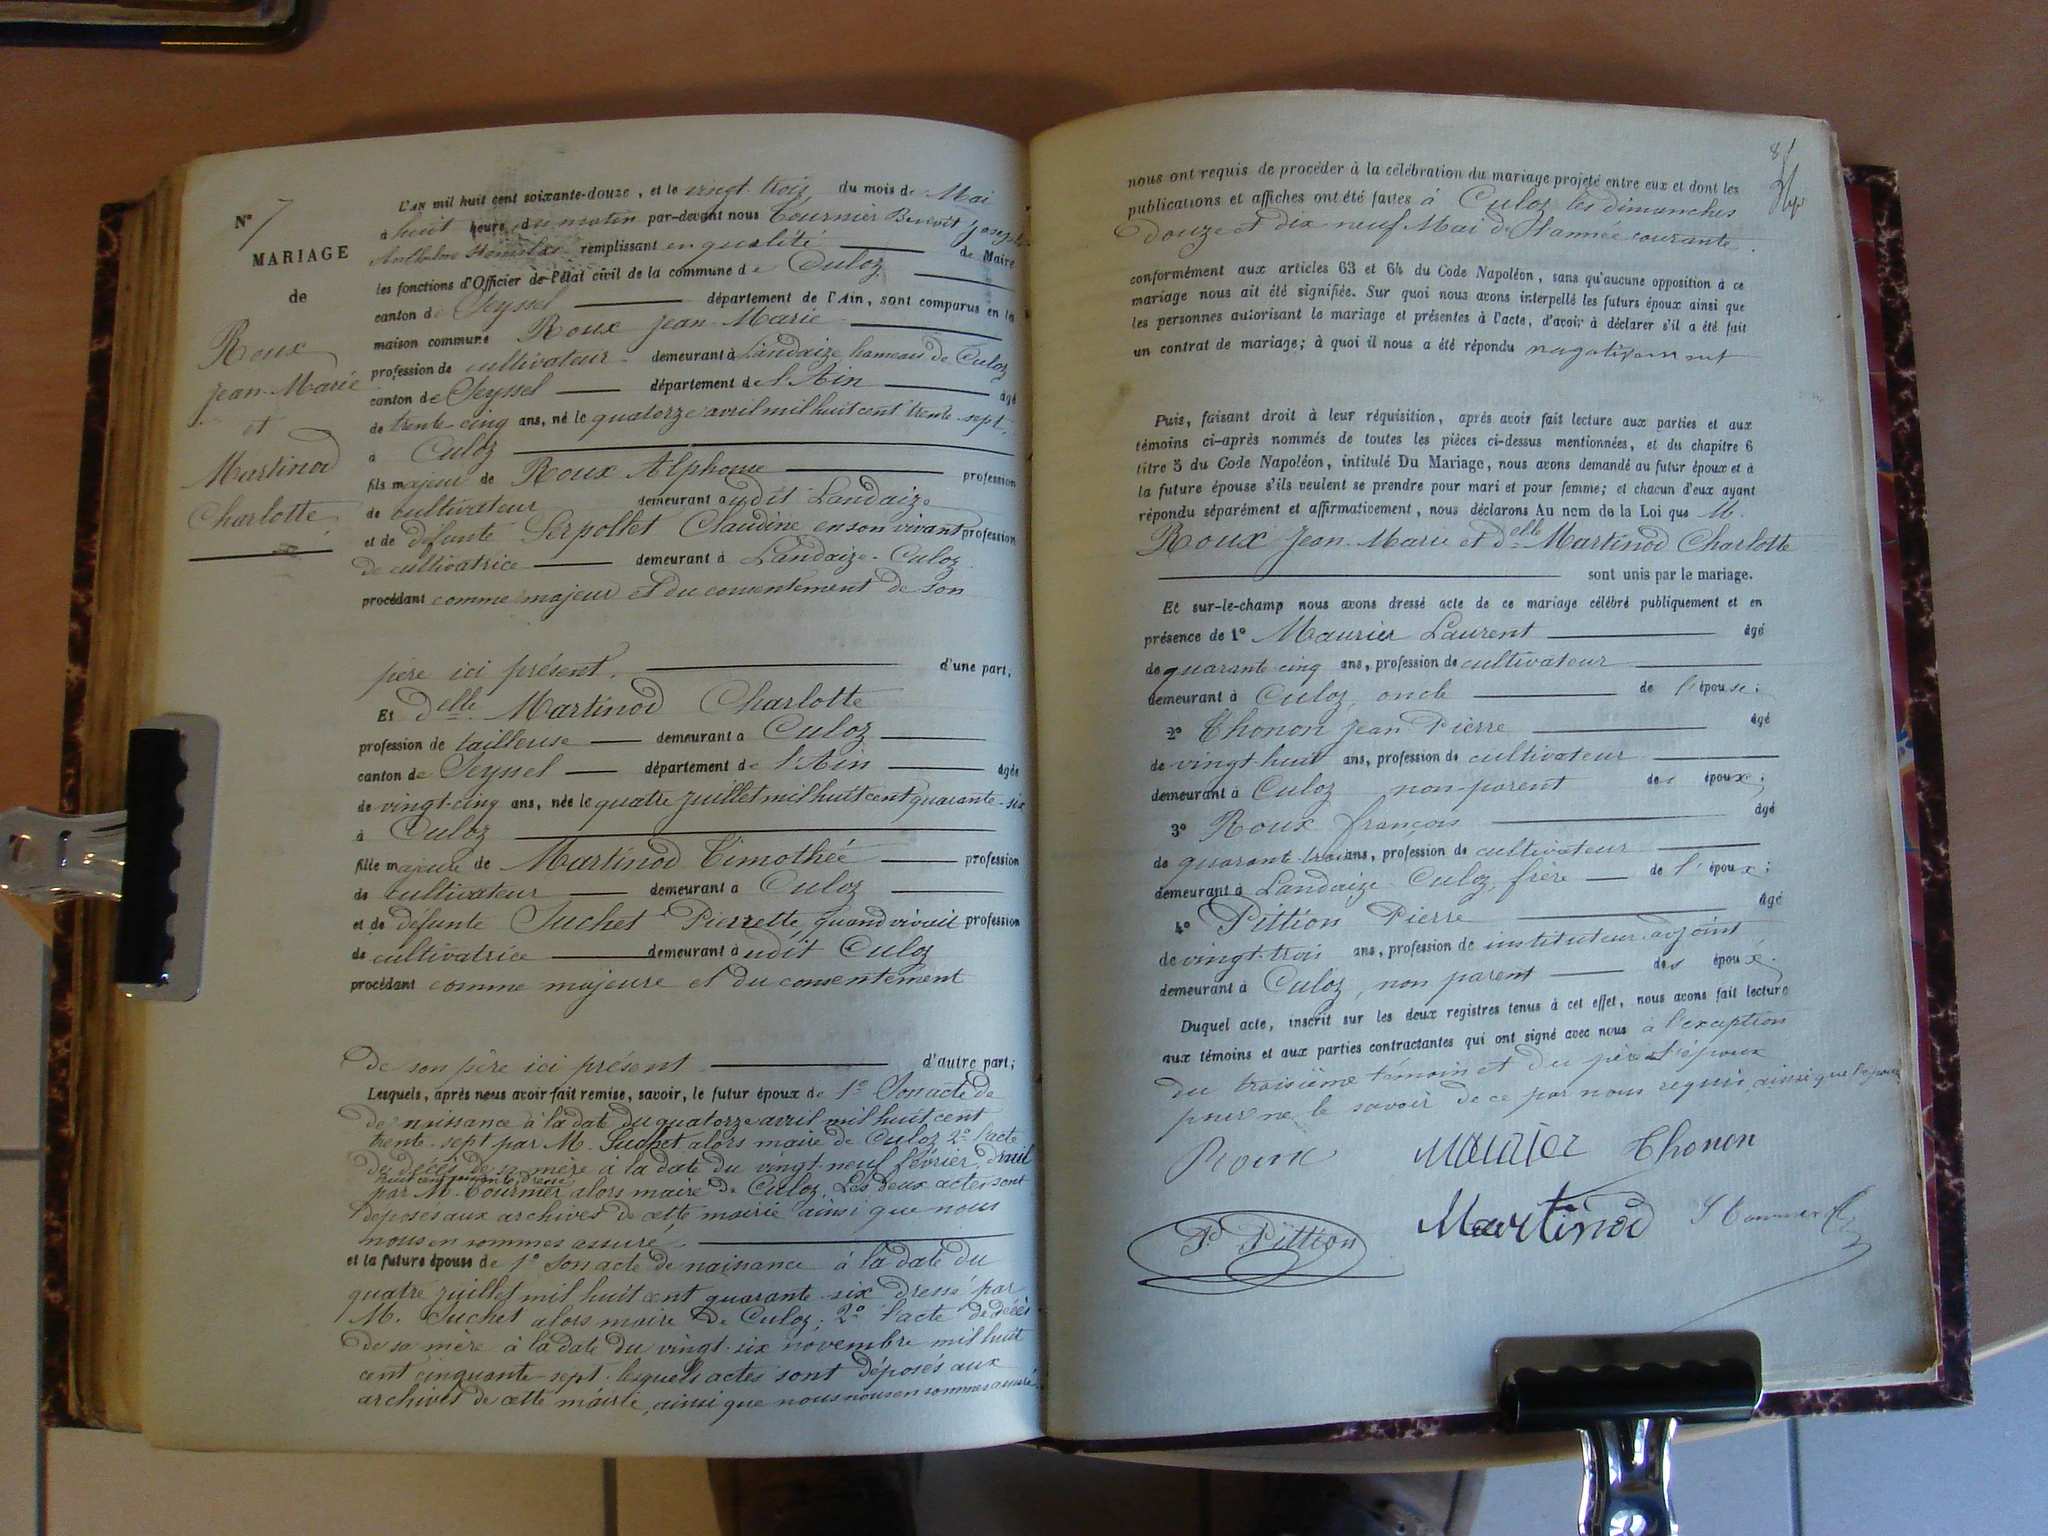 N° 7
MARIAGE
de
Roux
Jean-Marie
et
Martinod
Charlotte
L'AN mil huit cent soixante-douze, et le vingt-trois du mois de Mai
à huit heure du matin par-devant nous Tournier Benoit Joseph
Anthelme remplissant en qualité de Maire
les fonctions d'Officier de l'état civil de la commune de Culoz
canton de Seyssel département de l'Ain, sont comparus en la
maison commune Roux Jean-Marie
profession de cultivateur demeurant à Landaize, hameau de Culoz
canton de Seyssel département de l'Ain âgé
de trente-cinq ans, né le quatorze avril mil huit cent trente-sept,
à Culoz
fils majeur de Roux Alphonse profession
de cultivateur demeurant audit Landaize
et de défunte Serpollet Claudine en son vivant profession
de cultivatrice demeurant à Landaize-Culoz
procédant comme majeur et du consentement de son
père ici présent, d'une part;
Et delle Martinod Charlotte
profession de tailleuse demeurant à Culoz
canton de Seyssel département de l'Ain âgée
de vingt-cinq ans, née le quatre juillet mil huit cent quarante-six
à Culoz
fille majeure de Martinod Timothée profession
de cultivateur demeurant à Culoz
et de défunte Suchet Pierrette, quand vivait profession
de cultivatrice demeurant audit Culoz
procédant comme majeure et du consentement
de son père ici présent d'autre part;
Lesquels, après nous avoir fait remise, savoir, le futur époux de 1° Son acte de
de naissance à la date du quatorze avril mil huit cent
trente-sept par M. Suchet alors maire de Culoz 2° l'acte
de décès de sa mère à la date du vingt-neuf février mil
huit cent soixante dressé
par M. Tournier alors maire de Culoz. Les deux actes sont
déposés aux archives de cette mairie ainsi que nous
nous en sommes assuré
et la future épouse de 1° Son acte de naissance à la date du
quatre juillet mil huit cent quarante-six dressé par
M. Suchet alors maire de Culoz; 2° l'acte de décès
de sa mère à la date du vingt-six novembre mil huit
cent cinquante-sept. lesquels actes sont déposés aux
archives de cette mairie, ainsi que nous nous en sommes assuré
8
nous ont requis de procéder à la célébration du mariage projeté entre eux et dont les
publications et affiches ont été faites à Culoz les dimanches
douze et dix neuf Mai de l'année courante.
conformément aux articles 63 et 64 du Code Napoléon, sans qu'aucune opposition à ce
mariage nous ait été signifiée. Sur quoi nous avons interpellé les futurs époux ainsi que
les personnes autorisant le mariage et présentes à l'acte, d'avoir à déclarer s'il a été fait
un contrat de mariage; à quoi il nous a été répondu négativement
Puis, faisant droit à leur réquisition, après avoir fait lecture aux parties et aux
témoins ci-après nommés de toutes les pièces ci-dessus mentionnées, et du chapitre 6
titre 5 du Code Napoléon, intitulé Du Mariage, nous avons demandé au futur époux et à
la future épouse s'ils veulent se prendre pour mari et pour femme; et chacun d'eux ayant
répondu séparément et affirmativement, nous déclarons Au nom de la Loi que M.
Roux Jean-Marie et delle Martinod Charlotte
sont unis par le mariage.
Et sur-le-champ nous avons dressé acte de ce mariage célébré publiquement et en
présence de 1° Maurier Laurent âgé
de quarante-cinq ans, profession de cultivateur
demeurant à Culoz, oncle de l'épouse;
2° Thonon Jean Pierre âgé
de vingt-huit ans, profession de cultivateur
demeurant à Culoz non-parent des époux;
3° Roux françois âgé
de quarante-trois ans, profession de cultivateur
demeurant à Landaize Culoz, frère de l'époux;
4° Pittion Pierre âgé
de vingt-trois ans, profession de instituteur-adjoint
demeurant à Culoz, non parent des époux.
Duquel acte, inscrit sur les deux registres tenus à cet effet, nous avons fait lecture
aux témoins et aux parties contractantes qui ont signé avec nous à l'exception
du troisième témoin et du père de l'époux
pour ne le savoir de ce par nous requis, ainsi que l'époux
Roux Maurier Thonon
P. Pittion Martinod